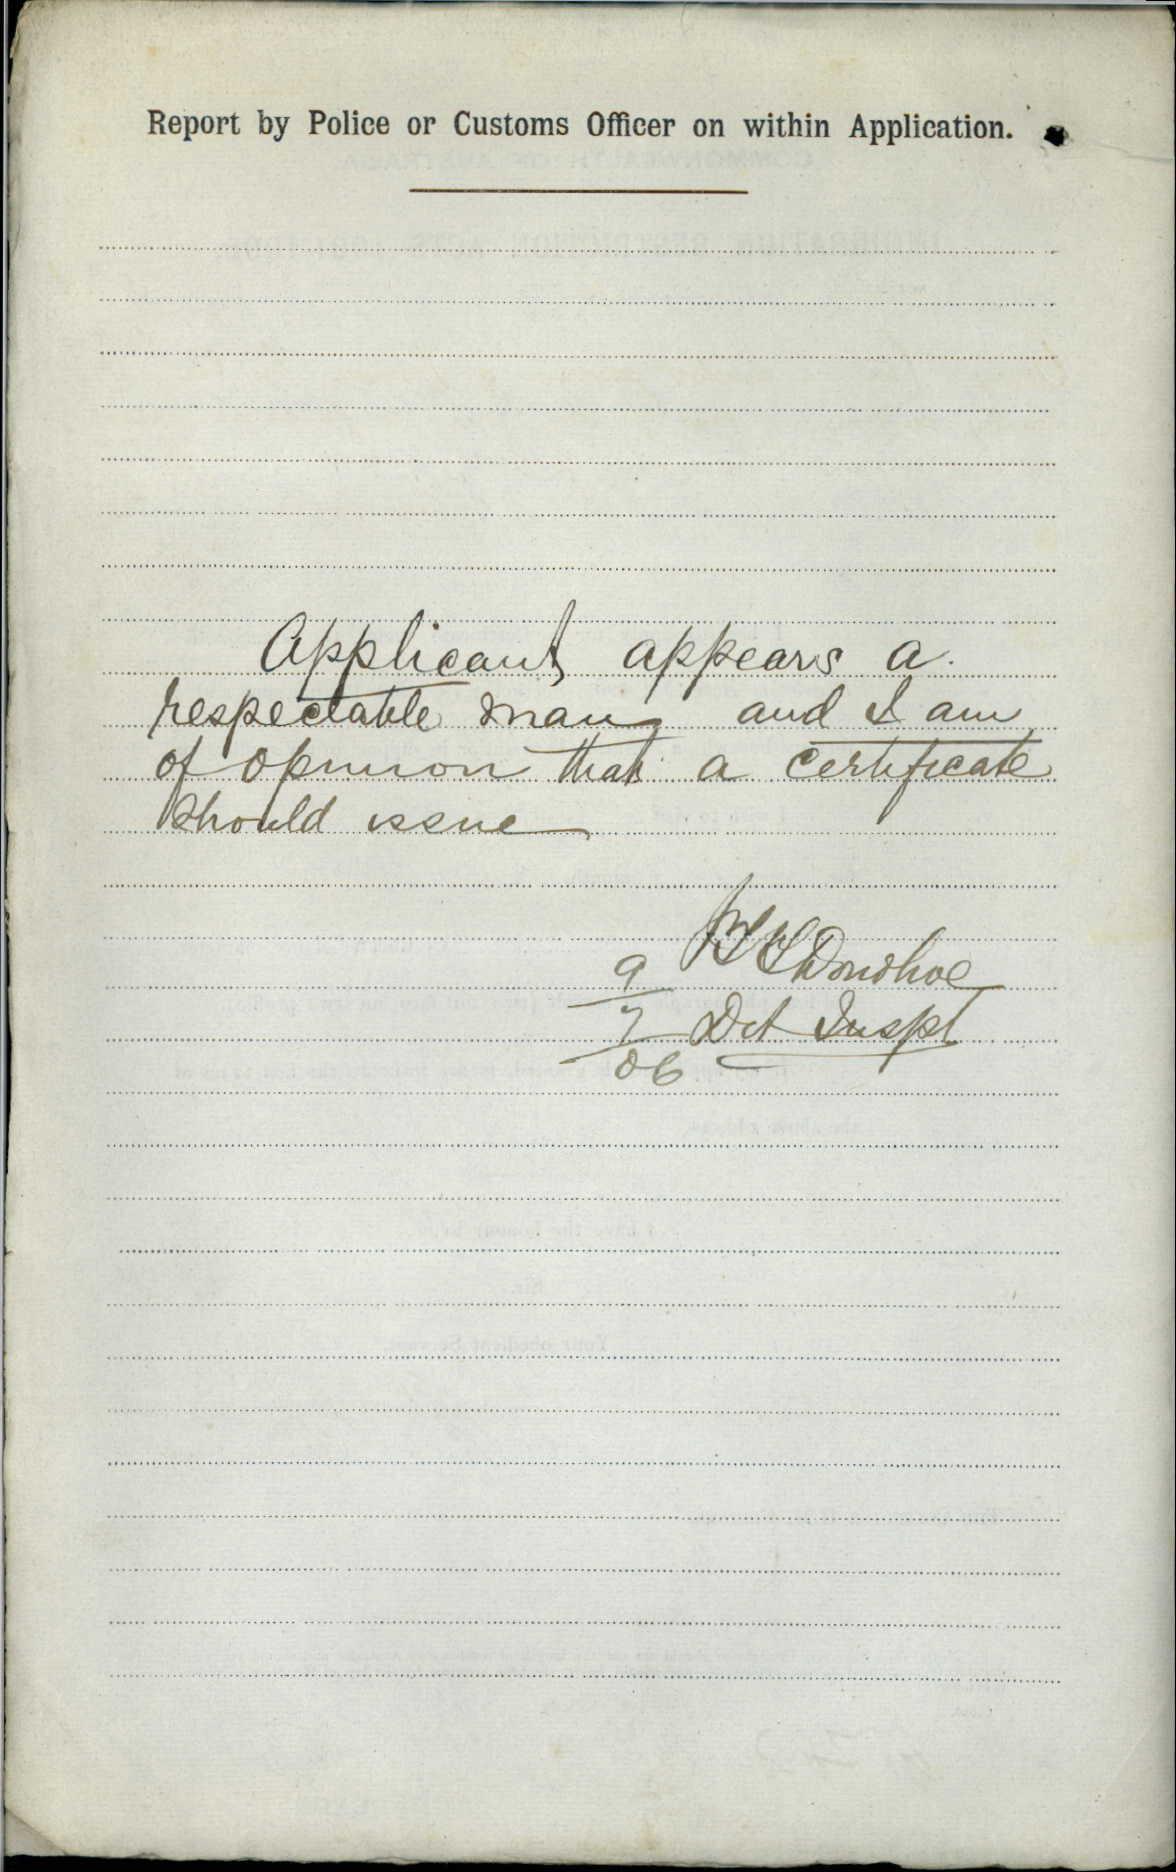 Report by Police or Customs Officer on within Application.
Applicant appears a
respectable man and I am
of opinion that a certificate
should issue
Donohoe
9
7 Det Inspt
06